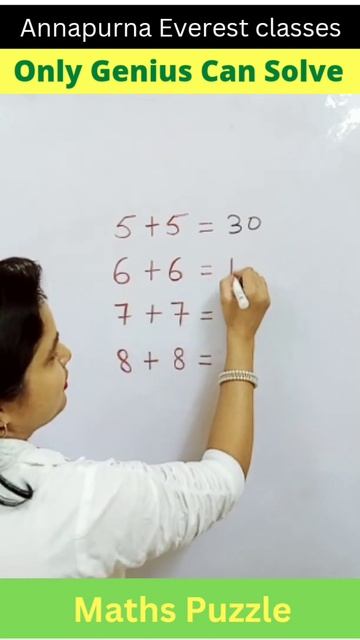 Annapurna Everest classes
Only Genius Can Solve
5 + 5 = 30
6 + 6 =
7 + 7 =
8 + 8 =
Maths Puzzle